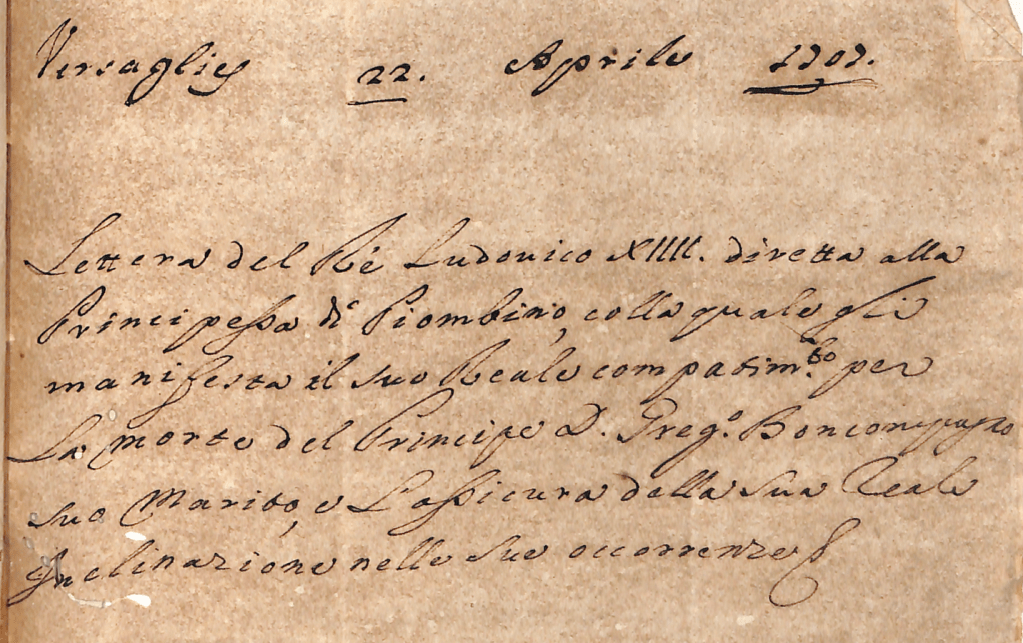 Versaglies 22. Aprile 1707.
Lettera del Rè Ludovico XIIII. diretta alla
Principessa di Piombino, colla quale gli
manifesta il suo Reale compatim.to per
La morte del Principe D. Greg.o Boncompagno
suo Marito, e L'assicura della sua Reale
Inclinazione nelle sue occorrenze